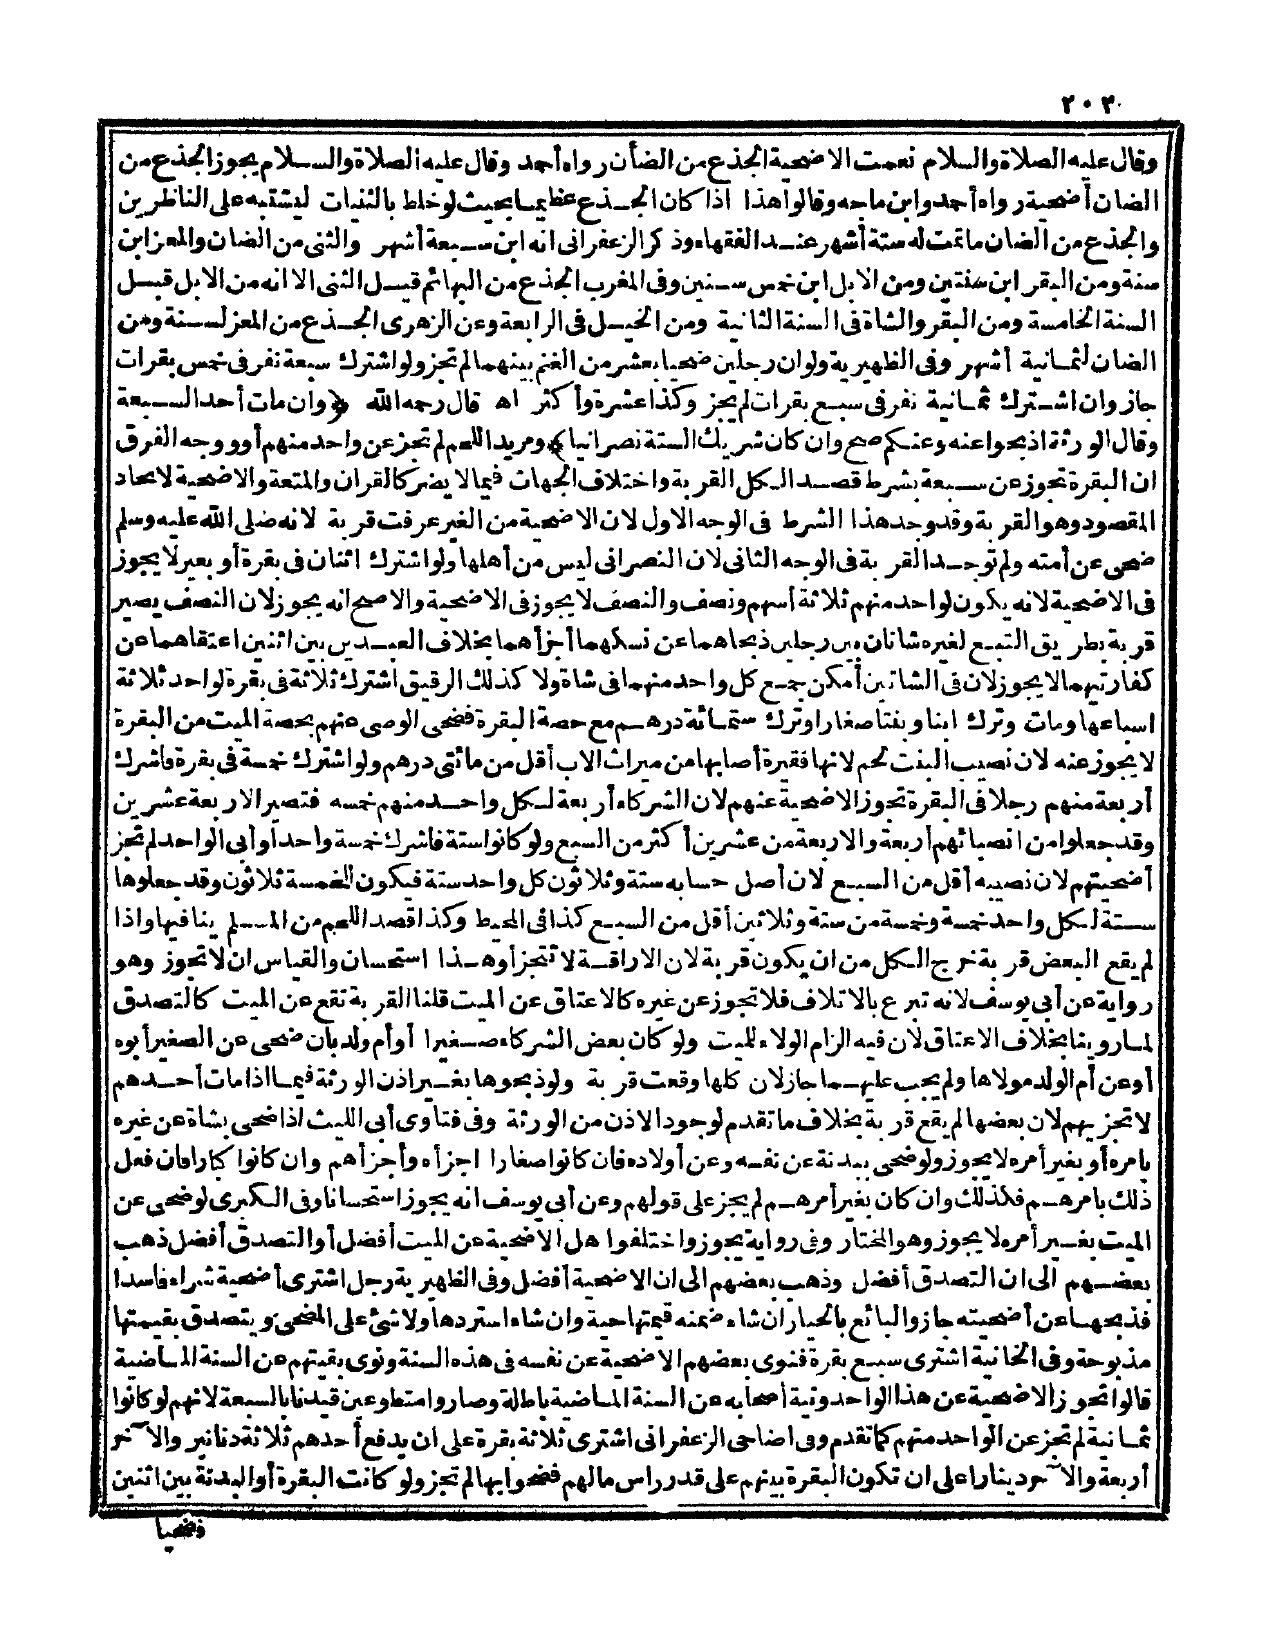 ٢٠٢
وقال عليه الصلاة والسلام نعمت الاضحية الجذع من الضأن رواه أحمد وقال عليه الصلاة والسلام يجوز الجذع من
الضان أضحية رواه أحمد وابن ماجه وقالوا هذا اذا كان الجذع عظيما بحيث لو خلط بالثنيات ليشتبه على الناظرين
والجذع من الضان ما تمت له ستة أشهر عند الفقهاء وذكر الزعفرانى انه ابن سبعة أشهر والثنى من الضان والمعز ابن
سنة ومن البقر ابن سنتين ومن الابل ابن خمس سنين وفى المغرب الجذع من البهائم قبل الثنى الا انه من الابل قبل
السنة الخامسة ومن البقر والشاة فى السنة الثانية ومن الخيل فى الرابعة وعن الزهرى الجذع من المعز لسنة ومن
الضان لثمانية أشهر وفى الظهيرية ولو ان رجلين ضحيا بعشر من الغنم بينهما لم تجز ولو اشترك سبعة نفر فى خمس بقرات
جاز وان اشترك ثمانية نفر فى سبع بقرات لم يجز وكذا عشرة وأكثر اه قال رحمه الله ﴿وان مات أحد السبعة
وقال الورثة اذبحوا عنه وعنكم صح وان كان شريك الستة نصرانيا﴾ ومريد اللحم لم تجز عن واحد منهم أو ووجه الفرق
ان البقرة تجوز عن سبعة بشرط قصد الكل القربة واختلاف الجهات فيما لا يضر كالقران والمتعة والاضحية لاتحاد
المقصود وهو القربة وقد وجد هذا الشرط فى الوجه الاول لان الاضحية من الغير عرفت قربة لانه صلى الله عليه وسلم
ضحى عن أمته ولم توجد القربة فى الوجه الثانى لان النصرانى ليس من أهلها ولو اشترك اثنان فى بقرة أو بعير لا يجوز
فى الاضحية لانه يكون لواحد منهم ثلاثة أسهم ونصف والنصف لا يجوز فى الاضحية والاصح انه يجوز لان النصف يصير
قربة بطريق التبع لغيره شاتان بين رجلين ذبحاهما عن نسكهما أجزأهما بخلاف العبدين بين اثنين اعتقاهما عن
كفارتيهما لا يجوز لان فى الشاتين أمكن جمع كل واحد منهما فى شاة ولا كذلك الرقيق اشترك ثلاثة فى بقرة لواحد ثلاثة
اسباعها ومات وترك ابنا وبنتا صغارا وترك ستمائة درهم مع حصة البقرة فضحى الوصى عنهم بحصة الميت من البقرة
لا يجوز عنه لان نصيب البنت لحم لانها فقيرة أصابها من ميراث الاب أقل من مائتى درهم ولو اشترك خمسة فى بقرة فاشرك
أربعة منهم رجلا فى البقرة تجوز الاضحية عنهم لان الشركاء أربعة لكل واحد منهم خمسه فتصير الاربعة عشرين
وقد جعلوا من انصبائهم أربعة والاربعة من عشرين أكثر من السبع ولو كانوا ستة فاشرك خمسة واحدا وأبى الواحد لم تجز
أضحيتهم لان نصيبه أقل من السبع لان أصل حسابه ستة وثلاثون كل واحد ستة فيكون الخمسة ثلاثون وقد جعلوها
ستة لكل واحد خمسة وخمسة من ستة وثلاثين أقل من السبع كذا فى المحيط وكذا قصد اللحم من المسلم ينافيها واذا
لم يقع البعض قربة خرج الكل من ان يكون قربة لان الاراقة لا تتجزأ وهذا استحسان والقياس ان لا تجوز وهو
رواية عن أبى يوسف لانه تبرع بالاتلاف فلا تجوز عن غيره كالاعتاق عن الميت قلنا القربة تقع عن الميت كالتصدق
لما روينا بخلاف الاعتاق لان فيه الزام الولاء للميت ولو كان بعض الشركاء صغيرا أو أم ولد بان ضحى عن الصغير أبوه
أو عن أم الولد مولاها ولم يجب عليهما جاز لان كلها وقعت قربة ولو ذبحوها بغير اذن الورثة فيما اذا مات أحدهم
لا تجزيهم لان بعضها لم يقع قربة بخلاف ما تقدم لوجود الاذن من الورثة وفى فتاوى أبى الليث اذا ضحى بشاة عن غيره
بامره أو بغير أمره لا يجوز ولو ضحى ببدنة عن نفسه وعن أولاده فان كانوا صغارا اجزأه وأجزأهم وان كانوا كبارا فان فعل
ذلك بامرهم فكذلك وان كان بغير أمرهم لم يجز على قولهم وعن أبى يوسف انه يجوز استحسانا وفى الكبرى لو ضحى عن
الميت بغير أمره لا يجوز وهو المختار وفى رواية يجوز واختلفوا هل الاضحية عن الميت أفضل أو التصدق أفضل ذهب
بعضهم الى ان التصدق أفضل وذهب بعضهم الى ان الاضحية أفضل وفى الظهيرية رجل اشترى أضحية شراء فاسدا
فذبحها عن أضحيته جاز والبائع بالخيار ان شاء ضمنه قيمتها حية وان شاء استردها ولا شئ على المضحى ويتصدق بقيمتها
مذبوحة وفى الخانية اشترى سبع بقرة فنوى بعضهم الاضحية عن نفسه فى هذه السنة ونوى بقيتهم عن السنة الماضية
قالوا تجوز الاضحية عن هذا الواحد ونية أصحابه عن السنة الماضية باطلة وصاروا متطوعين قيدنا بالسبعة لانهم لو كانوا
ثمانية لم تجز عن الواحد منهم كما تقدم وفى اضاحى الزعفرانى اشترى ثلاثة بقرة على ان يدفع أحدهم ثلاثة دنانير والآخر
أربعة والآخر دينارا على ان تكون البقرة بينهم على قدر راس مالهم فضحوا بها لم تجز ولو كانت البقرة أو البدنة بين اثنين
فضحيا